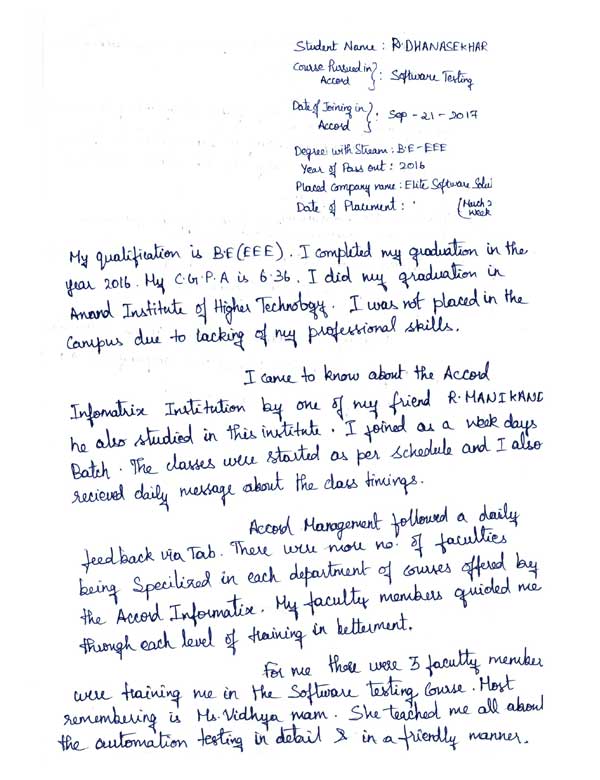 Student Name : R. DHANASEKHAR
Course Pursued in
Accord } : Software Testing
Date of Joining in
Accord } : Sep - 21 - 2017
Degree with Stream : B.E - EEE
Year of Pass out : 2016
Placed Company name : Elite Software
Date of Placement : (March 2
week
My qualification is B.E (EEE). I completed my graduation in the
year 2016. My C.G.P.A is 6.36. I did my graduation in
Anand Institute of Higher Technology. I was not placed in the
Campus due to lacking of my professional skills.
I came to know about the Accord
Infomatrix Institution by one of my friend R. MANIKAND
he also studied in this institute. I joined as a week days
Batch. The classes were started as per schedule and I also
recieved daily message about the class timings.
Accord Management followed a daily
feedback via Tab. There were more no. of faculties
being Specilized in each department of courses offered by
the Accord Informatix. My faculty members guided me
through each level of training in betterment.
For me there were 3 faculty member
were training me in the Software testing Course. Most
remembering is Ms. Vidhya mam. She teached me all about
the automation testing in detail & in a friendly manner.